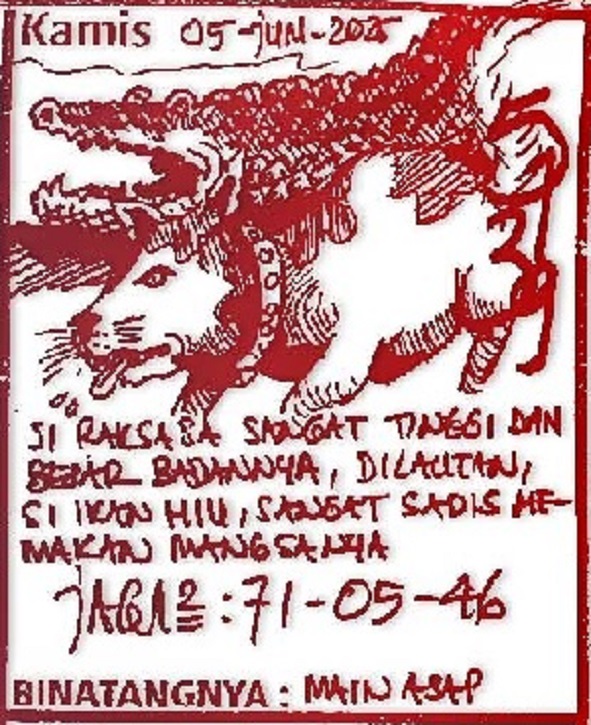 Kamis 05-JUN-2025
SI RAKSASA SANGAT TINGGI DAN
BESAR BADANNYA, DILAUTAN,
SI IKAN HIU, SANGAT SADIS ME-
MAKAN MANGSANYA
JAGA2 : 71-05-46
BINATANGNYA : MAIN ASAP